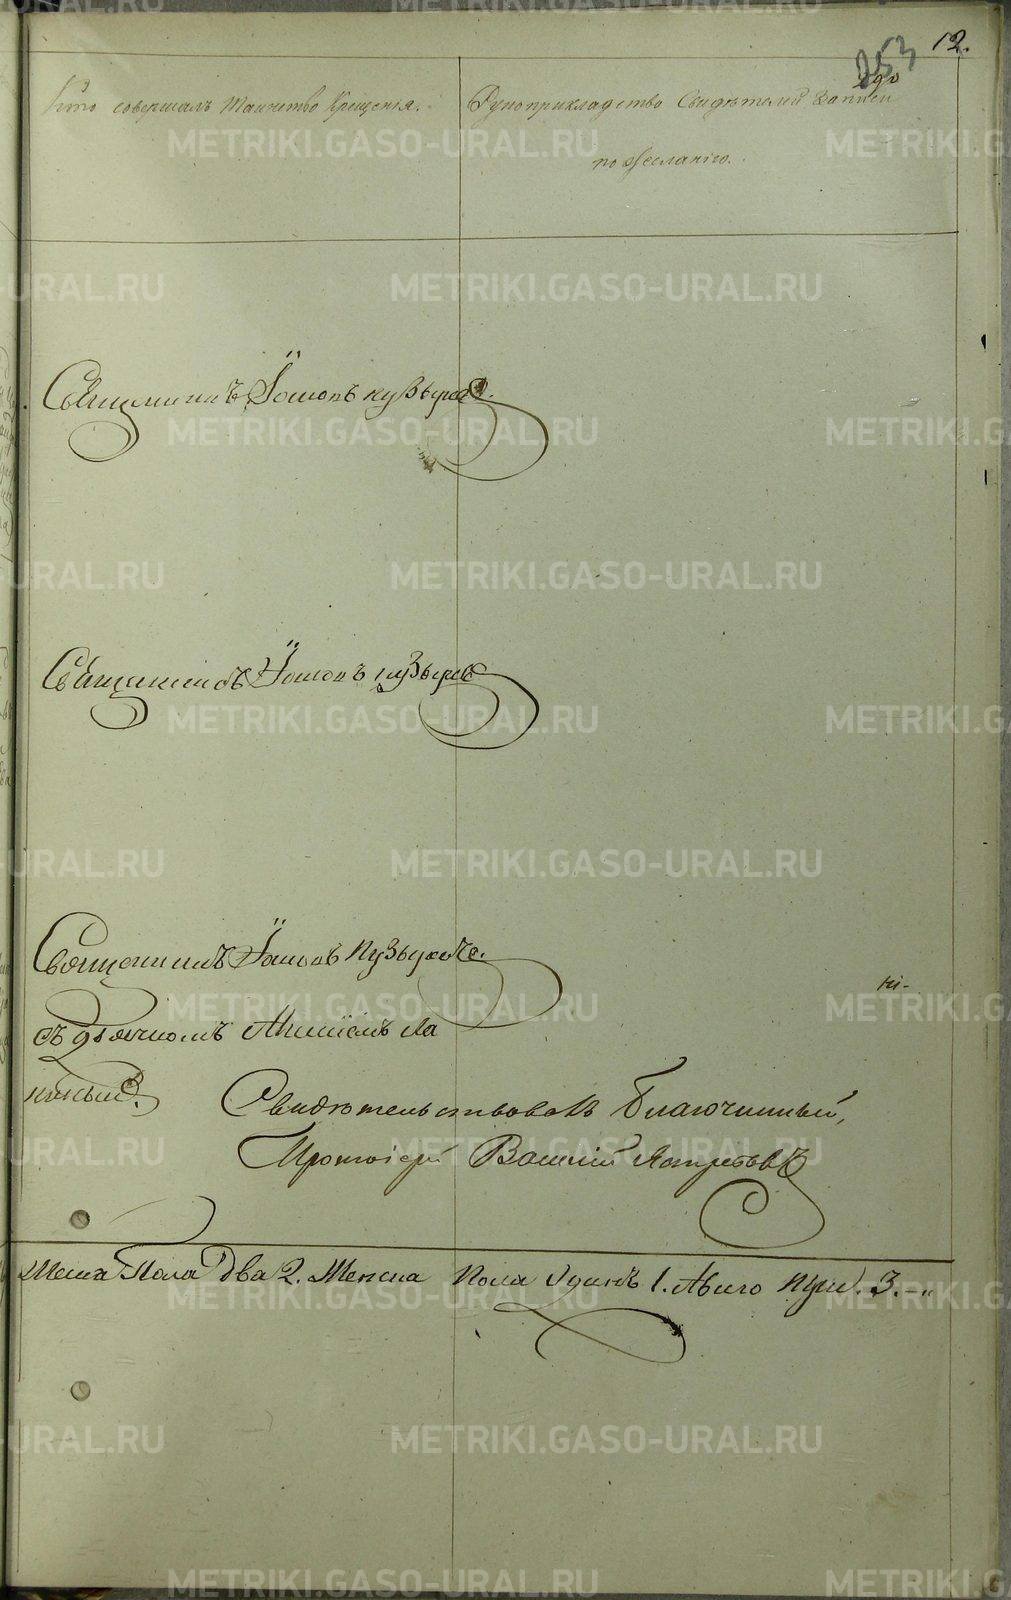 253 12.
Кто совершалъ Таинство Крещенія.
Рукоприкладство Свидѣтелей записи
по желанію.
Священникъ Іоаннъ Пузыревъ.
Священникъ Іоаннъ Пузыревъ
Священникъ Іоаннъ Пузыревъ.
съ дьячкомъ
Свидѣтельствовалъ Благочинный,
Протоіерей Василій
Мужска Пола два 2. Женска Пола Одинъ 1. Обоего 3.
METRIKI.GASO-URAL.RU